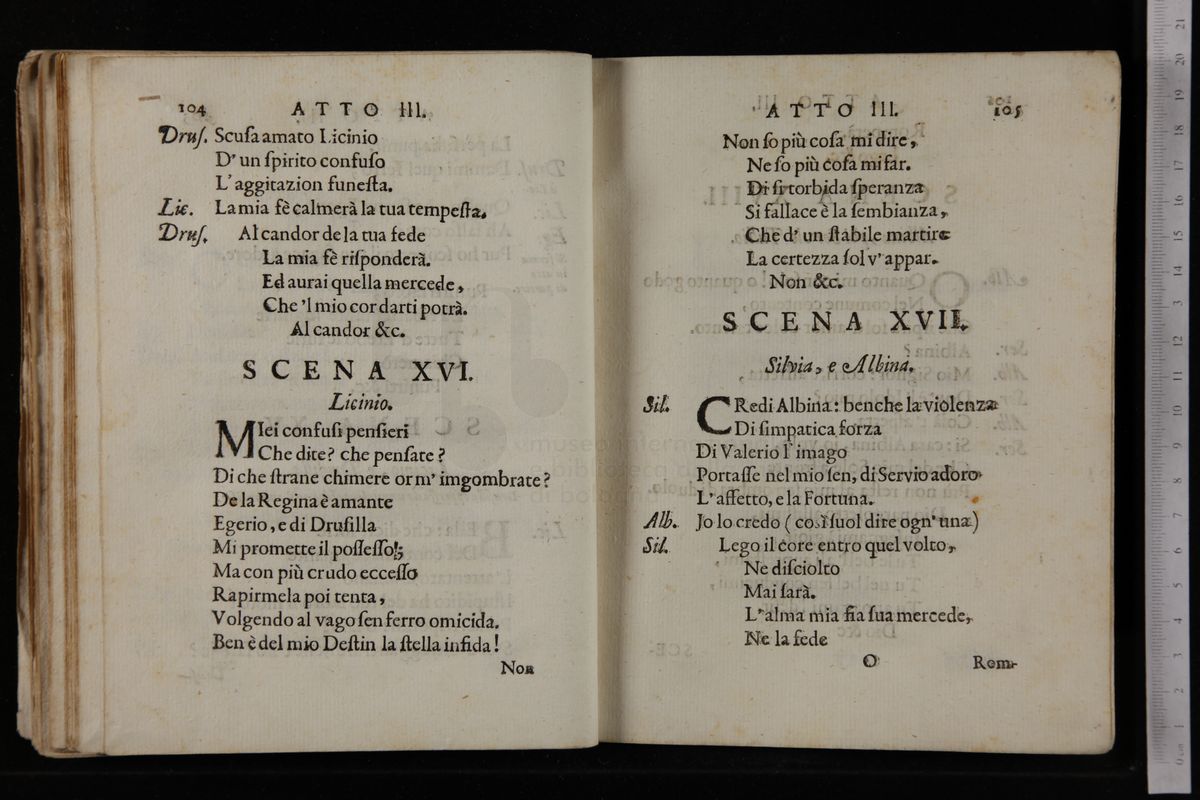 104 ATTO III.
Druſ. Scuſa amato Licinio
D' un ſpirito confuſo
L' aggitazion funeſta.
Lic. La mia fè calmerà la tua tempeſta.
Druſ. Al candor de la tua fede
La mia fè riſponderà.
Ed aurai quella mercede,
Che 'l mio cor darti potrà.
Al candor &c.
SCENA XVI.
Licinio.
MIei confuſi penſieri
Che dite? che penſate?
Di che ſtrane chimere or m' imgombrate?
De la Regina è amante
Egerio, e di Druſilla
Mi promette il poſſeſſo!;
Ma con più crudo ecceſſo
Rapirmela poi tenta,
Volgendo al vago ſen ferro omicida.
Ben è del mio Deſtin la ſtella infida!
Non
ATTO III. 105
Non ſo più coſa mi dire,
Ne ſo più coſa mi far.
Di ſi torbida ſperanza
Si fallace è la ſembianza,
Che d' un ſtabile martire
La certezza ſol v' appar.
Non &c.
SCENA XVII.
Silvia, e Albina.
Sil. CRedi Albina: benche la violenza
Di ſimpatica forza
Di Valerio l' imago
Portaſſe nel mio ſen, di Servio adoro
L' affetto, e la Fortuna.
Alb. Jo lo credo (coſì ſuol dire ogn' una)
Sil. Lego il core entro quel volto,
Ne diſciolto
Mai ſarà.
L' alma mia fia ſua mercede,
Ne la fede
O Rom-